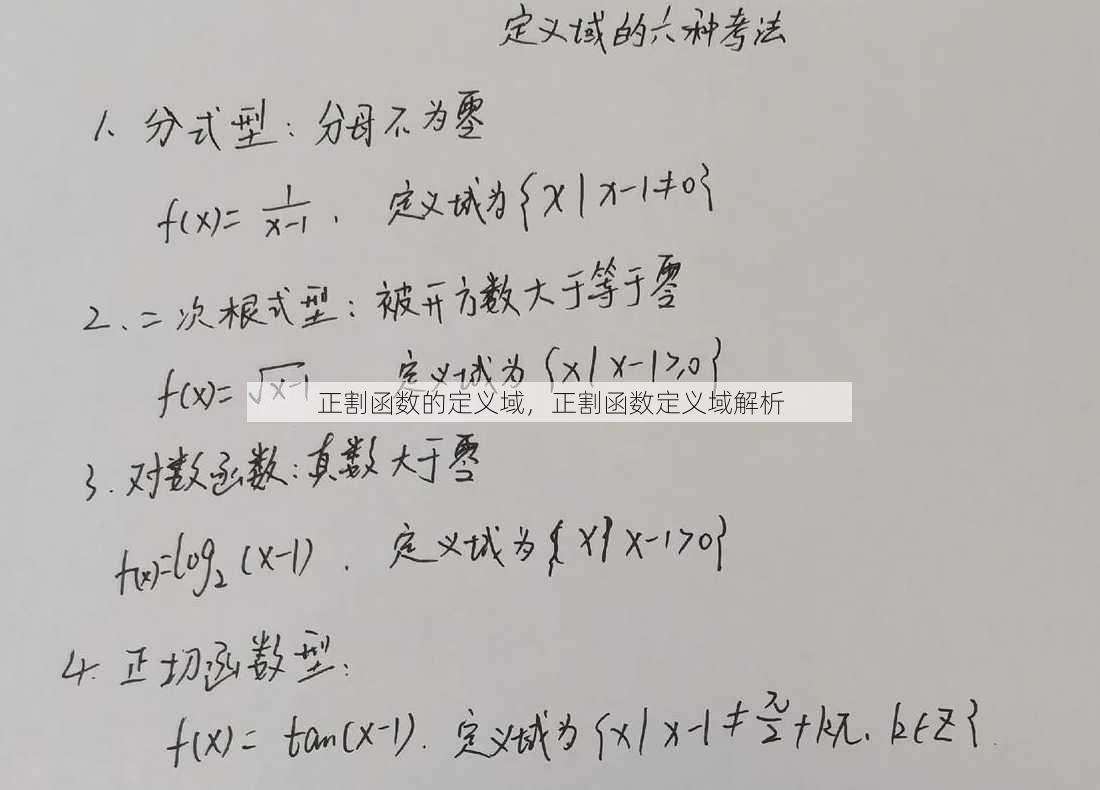 定义域的六种考法
1、分式型：分母不为零
f(x)= 1/(x-1) , 定义域为{x|x-1≠0}
2、二次根式型：被开方数大于等于零
f(x)= √(x-1) 定义域为{x|x-1≥0}
正割函数的定义域，正割函数定义域解析
3.对数函数：真数大于零
f(x)=log₂(x-1). 定义域为{x|x-1>0}
4.正切函数型：
f(x)= tan(x-1). 定义域为{x|x-1≠π/2+kπ, k∈Z}.